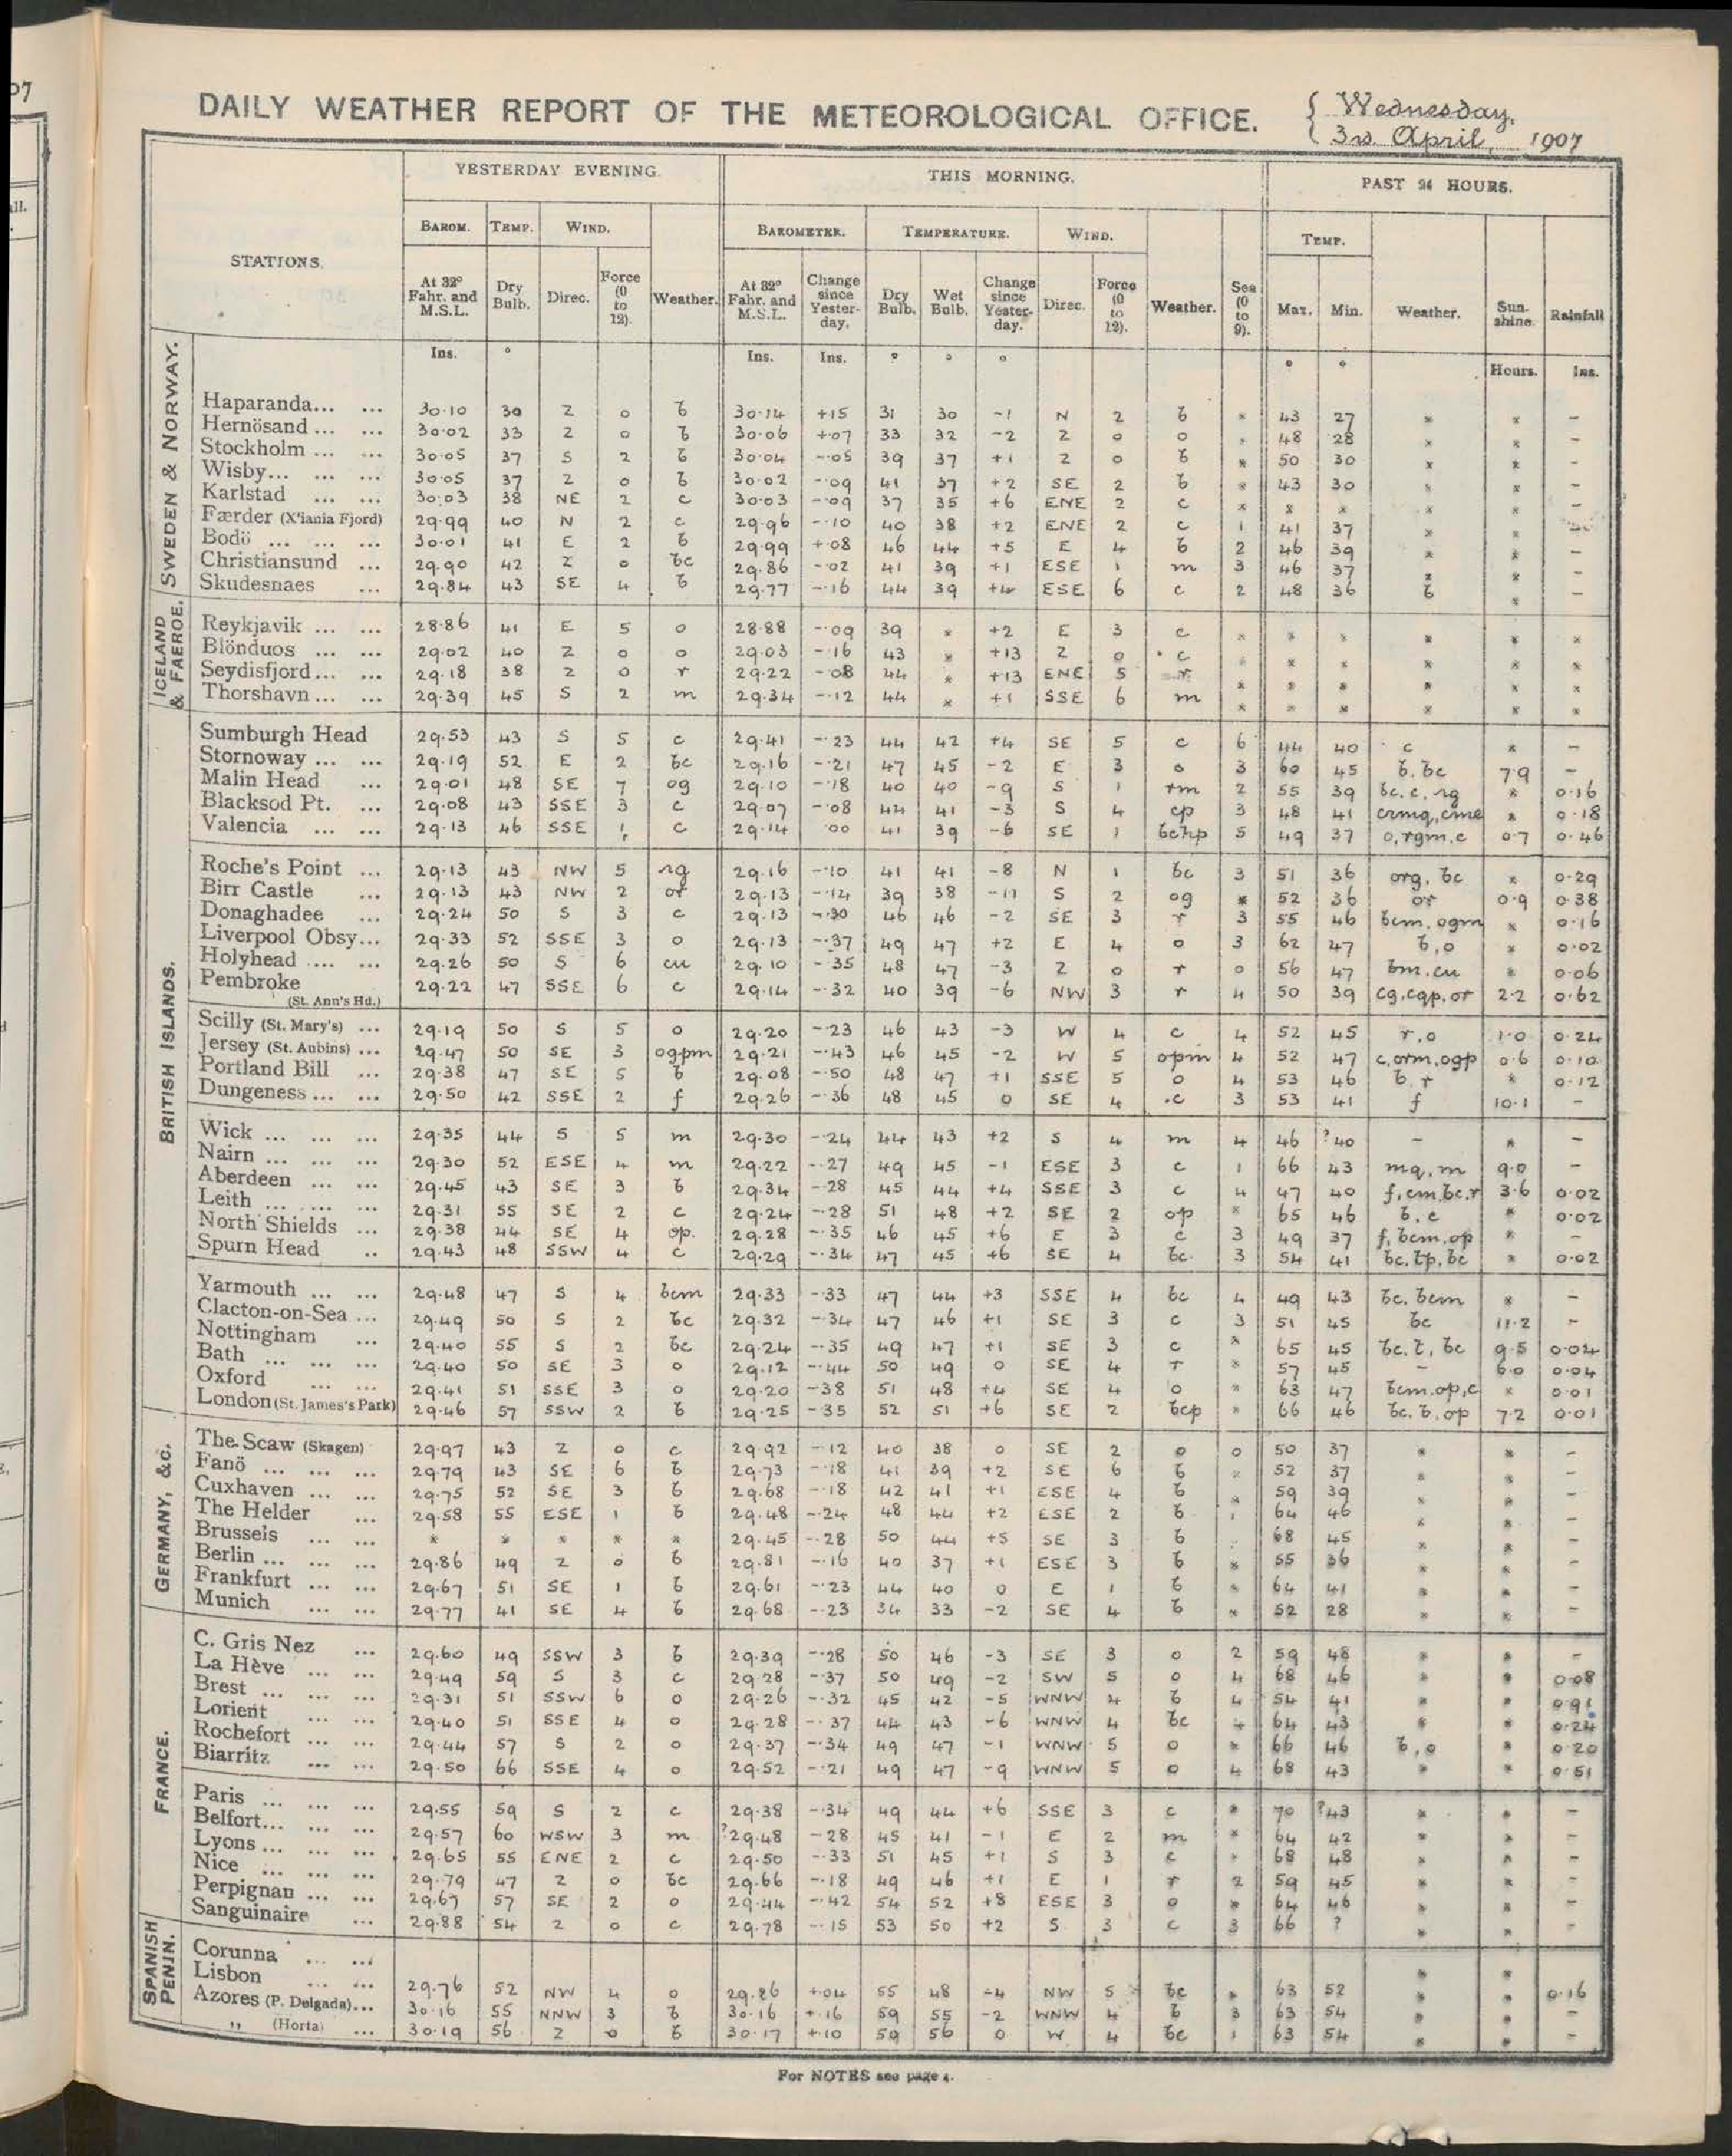 07
all.
DAILY WEATHER REPORT OF THE METEOROLOGICAL OFFICE. { Wednesday, 3rd April, 1907
YESTERDAY EVENING. THIS MORNING. PAST 24 HOURS.
STATIONS. BAROM. TEMP. WIND. Weather. BAROMETER. TEMPERATURE. WIND. Weather. Sea (0 to 9). TEMP. Weather. Sunshine. Rainfall
At 32° Fahr. and M.S.L. Dry Bulb. Direc. Force (0 to 12). At 32° Fahr. and M.S.L. Change since Yester-day. Dry Bulb. Wet Bulb. Change since Yester-day. Direc. Force (0 to 12). Max. Min.
Ins. ° Ins. Ins. ° ° ° ° ° Hours. Ins.
SWEDEN & NORWAY.
Haparanda... ... 30.10 30 Z 0 b 30.14 +.15 31 30 -1 N 2 b * 43 27 * * -
Hernösand ... ... 30.02 33 Z 0 b 30.06 +.07 33 32 -2 Z 0 0 * 48 28 * * -
Stockholm ... ... 30.05 37 S 2 b 30.04 -.05 39 37 +1 Z 0 b * 50 30 * * -
Wisby... ... ... 30.05 37 Z 0 b 30.02 -.09 41 37 +2 SE 2 b * 43 30 * * -
Karlstad ... ... 30.03 38 NE 2 c 30.03 -.09 37 35 +6 ENE 2 c * * * * * -
Færder (X'iania Fjord) 29.99 40 N 2 c 29.96 -.10 40 38 +2 ENE 2 c 1 41 37 * *
Bodö ... ... ... 30.01 41 E 2 b 29.99 +.08 46 44 +5 E 4 b 2 46 39 * * -
Christiansund ... 29.90 42 Z 0 bc 29.86 -.02 41 39 +1 ESE 1 m 3 46 37 * * -
Skudesnaes ... 29.84 43 SE 4 b 29.77 -.16 44 39 +4 ESE 6 c 2 48 36 b * -
ICELAND & FAEROE.
Reykjavik ... ... 28.86 41 E 5 o 28.88 -.09 39 * +2 E 3 c * * * * * *
Blönduos ... ... 29.02 40 Z 0 o 29.03 -.16 43 * +13 Z 0 c * * * * * *
Seydisfjord... ... 29.18 38 Z 0 r 29.22 -.08 44 * +13 ENE 5 r * * * * * *
Thorshavn ... ... 29.39 45 S 2 m 29.34 -.12 44 * +1 SSE 6 m * * * * * *
BRITISH ISLANDS.
Sumburgh Head 29.53 43 S 5 c 29.41 -.23 44 42 +4 SE 5 c 6 44 40 c * -
Stornoway ... ... 29.19 52 E 2 bc 29.16 -.21 47 45 -2 E 3 o 3 60 45 b.bc 7.9 -
Malin Head ... 29.01 48 SE 7 og 29.10 -.18 40 40 -9 S 1 rm 2 55 39 bc.c.rg * 0.16
Blacksod Pt. ... 29.08 43 SSE 3 c 29.07 -.08 44 41 -3 S 4 cp 3 48 41 crmq,cme * 0.18
Valencia ... ... 29.13 46 SSE 1 c 29.14 .00 41 39 -6 SE 1 bchp 5 49 37 o,rgm.c 0.7 0.46
Roche's Point ... 29.13 43 NW 5 rg 29.16 -.10 41 41 -8 N 1 bc 3 51 36 org, bc * 0.29
Birr Castle ... 29.13 43 NW 2 or 29.13 -.14 39 38 -11 S 2 og * 52 36 or 0.9 0.38
Donaghadee ... 29.24 50 S 3 c 29.13 -.30 46 46 -2 SE 3 r 3 55 46 bcm.ogm * 0.16
Liverpool Obsy... 29.33 52 SSE 3 o 29.13 -.37 49 47 +2 E 4 o 3 62 47 b,o * 0.02
Holyhead .... ... 29.26 50 S 6 cu 29.10 -.35 48 47 -3 Z 0 r 0 56 47 bm.cu * 0.06
Pembroke (St. Ann's Hd.) 29.22 47 SSE 6 c 29.14 -.32 40 39 -6 NW 3 r 4 50 39 cg,cqp,or 2.2 0.62
Scilly (St. Mary's) ... 29.19 50 S 5 o 29.20 -.23 46 43 -3 W 4 c 4 52 45 r.o 1.0 0.24
Jersey (St. Aubins) ... 29.47 50 SE 3 ogpm 29.21 -.43 46 45 -2 W 5 opm 4 52 47 c,orm.ogp 0.6 0.10
Portland Bill ... 29.38 47 SE 5 b 29.08 -.50 48 47 +1 SSE 5 o 4 53 46 b.r * 0.12
Dungeness ... ... 29.50 42 SSE 2 f 29.26 -.36 48 45 0 SE 4 c 3 53 41 f 10.1 -
Wick ... ... ... 29.35 44 S 5 m 29.30 -.24 44 43 +2 S 4 m 4 46 ?40 - * -
Nairn ... ... ... 29.30 52 ESE 4 m 29.22 -.27 49 45 -1 ESE 3 c 1 66 43 mq,m 9.0 -
Aberdeen ... ... 29.45 43 SE 3 b 29.34 -.28 45 44 +4 SSE 3 c 4 47 40 f,cm,bc,r 3.6 0.02
Leith ... ... ... 29.31 55 SE 2 c 29.24 -.28 51 48 +2 SE 2 op * 65 46 b.c * 0.02
North Shields ... 29.38 44 SE 4 op. 29.28 -.35 46 45 +6 E 3 c 3 49 37 f,bcm.op * -
Spurn Head .. 29.43 48 SSW 4 c 29.29 -.34 47 45 +6 SE 4 bc. 3 54 41 bc.tp.bc * 0.02
Yarmouth ... ... 29.48 47 S 4 bcm 29.33 -.33 47 44 +3 SSE 4 bc 4 49 43 bc.bcm * -
Clacton-on-Sea ... 29.49 50 S 2 bc 29.32 -.34 47 46 +1 SE 3 c 3 51 45 bc 11.2 -
Nottingham ... 29.40 55 S 2 bc 29.24 -.35 49 47 +1 SE 3 c * 65 45 bc.t, bc 9.5 0.04
Bath ... ... ... 29.40 50 SE 3 o 29.12 -.44 50 49 0 SE 4 r * 57 45 - 6.0 0.04
Oxford ... ... 29.41 51 SSE 3 o 29.20 -38 51 48 +4 SE 4 o * 63 47 bcm.op,c * 0.01
London (St. James's Park) 29.46 57 SSW 2 b 29.25 -.35 52 51 +6 SE 2 bcp * 66 46 bc.b.op 7.2 0.01
GERMANY, &c.
The Scaw (Skagen) 29.97 43 Z 0 c 29.92 -.12 40 38 0 SE 2 o 0 50 37 * * -
Fanö ... ... ... 29.79 43 SE 6 b 29.73 -.18 41 39 +2 SE 6 b * 52 37 * * -
Cuxhaven ... ... 29.75 52 SE 3 b 29.68 -.18 42 41 +1 ESE 4 b * 59 39 * * -
The Helder ... 29.58 55 ESE 1 b 29.48 -.24 48 44 +2 ESE 2 b 1 64 46 * * -
Brussels ... ... * * * * * 29.45 -.28 50 44 +5 SE 3 b 68 45 * * -
Berlin ... ... ... 29.86 49 Z 0 b 29.81 -.16 40 37 +1 ESE 3 b * 55 36 * * -
Frankfurt ... ... 29.67 51 SE 1 b 29.61 -.23 44 40 0 E 1 b * 64 41 * * -
Munich ... ... 29.77 41 SE 4 b 29.68 -.23 34 33 -2 SE 4 b * 52 28 * * -
FRANCE.
C. Gris Nez ... 29.60 49 SSW 3 b 29.39 -.28 50 46 -3 SE 3 o 2 59 48 * * -
La Hève ... ... 29.49 59 S 3 c 29.28 -.37 50 49 -2 SW 5 o 4 68 46 * * 0.08
Brest ... ... ... 29.31 51 SSW 6 o 29.26 -.32 45 42 -5 WNW 4 b 4 54 41 * * 0.91
Lorient ... ... 29.40 51 SSE 4 o 29.28 -.37 44 43 -6 WNW 4 bc 4 64 43 * * 0.24
Rochefort ... ... 29.44 57 S 2 o 29.37 -.34 49 47 -1 WNW 5 o * 66 46 b,o * 0.20
Biarritz ... ... 29.50 66 SSE 4 o 29.52 -.21 49 47 -9 WNW 5 o 4 68 43 * * 0.51
Paris ... ... ... 29.55 59 S 2 c 29.38 -.34 49 44 +6 SSE 3 c * 70 ?43 * * -
Belfort... ... ... 29.57 60 WSW 3 m ?29.48 -.28 45 41 -1 E 2 m * 64 42 * * -
Lyons ... ... ... 29.65 55 ENE 2 c 29.50 -.33 51 45 +1 S 3 c * 68 48 * * -
Nice ... ... ... 29.79 47 Z 0 bc 29.66 -.18 49 46 +1 E 1 r 2 59 45 * * -
Perpignan ... ... 29.67 57 SE 2 o 29.44 -.42 54 52 +8 ESE 3 o * 64 46 * * -
Sanguinaire ... 29.88 54 Z 0 c 29.78 -.15 53 50 +2 S 3 c 3 66 ? * * -
SPANISH PENIN.
Corunna ... ... * *
Lisbon ... ... 29.76 52 NW 4 o 29.86 +.04 55 48 -4 NW 5 bc * 63 52 * * 0.16
Azores (P. Delgada)... 30.16 55 NNW 3 b 30.16 +.16 59 55 -2 WNW 4 b 3 63 54 * * -
" (Horta) ... 30.19 56 Z 0 b 30.17 +.10 59 56 0 W 4 bc 1 63 54 * * -
For NOTES see page 4.